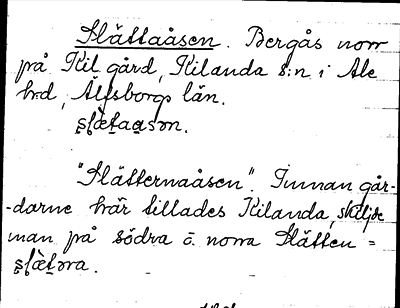 Slättaåsen. Bergås norr
på Kil gård, Kilanda s:n i Ale
hrd, Älfsborgs län.
"Slätternaåsen". Innan går-
-darne här tillades Kilanda, skiljde
man på södra o. norra Slätten =